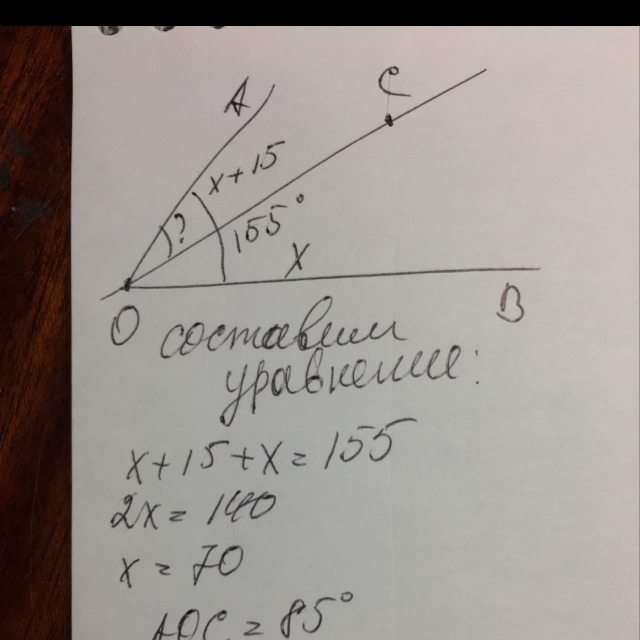 A
C
x+15
?
155°
x
O
B
составим
уравнение:
x+15+x=155
2x=140
x=70
AOC=85°